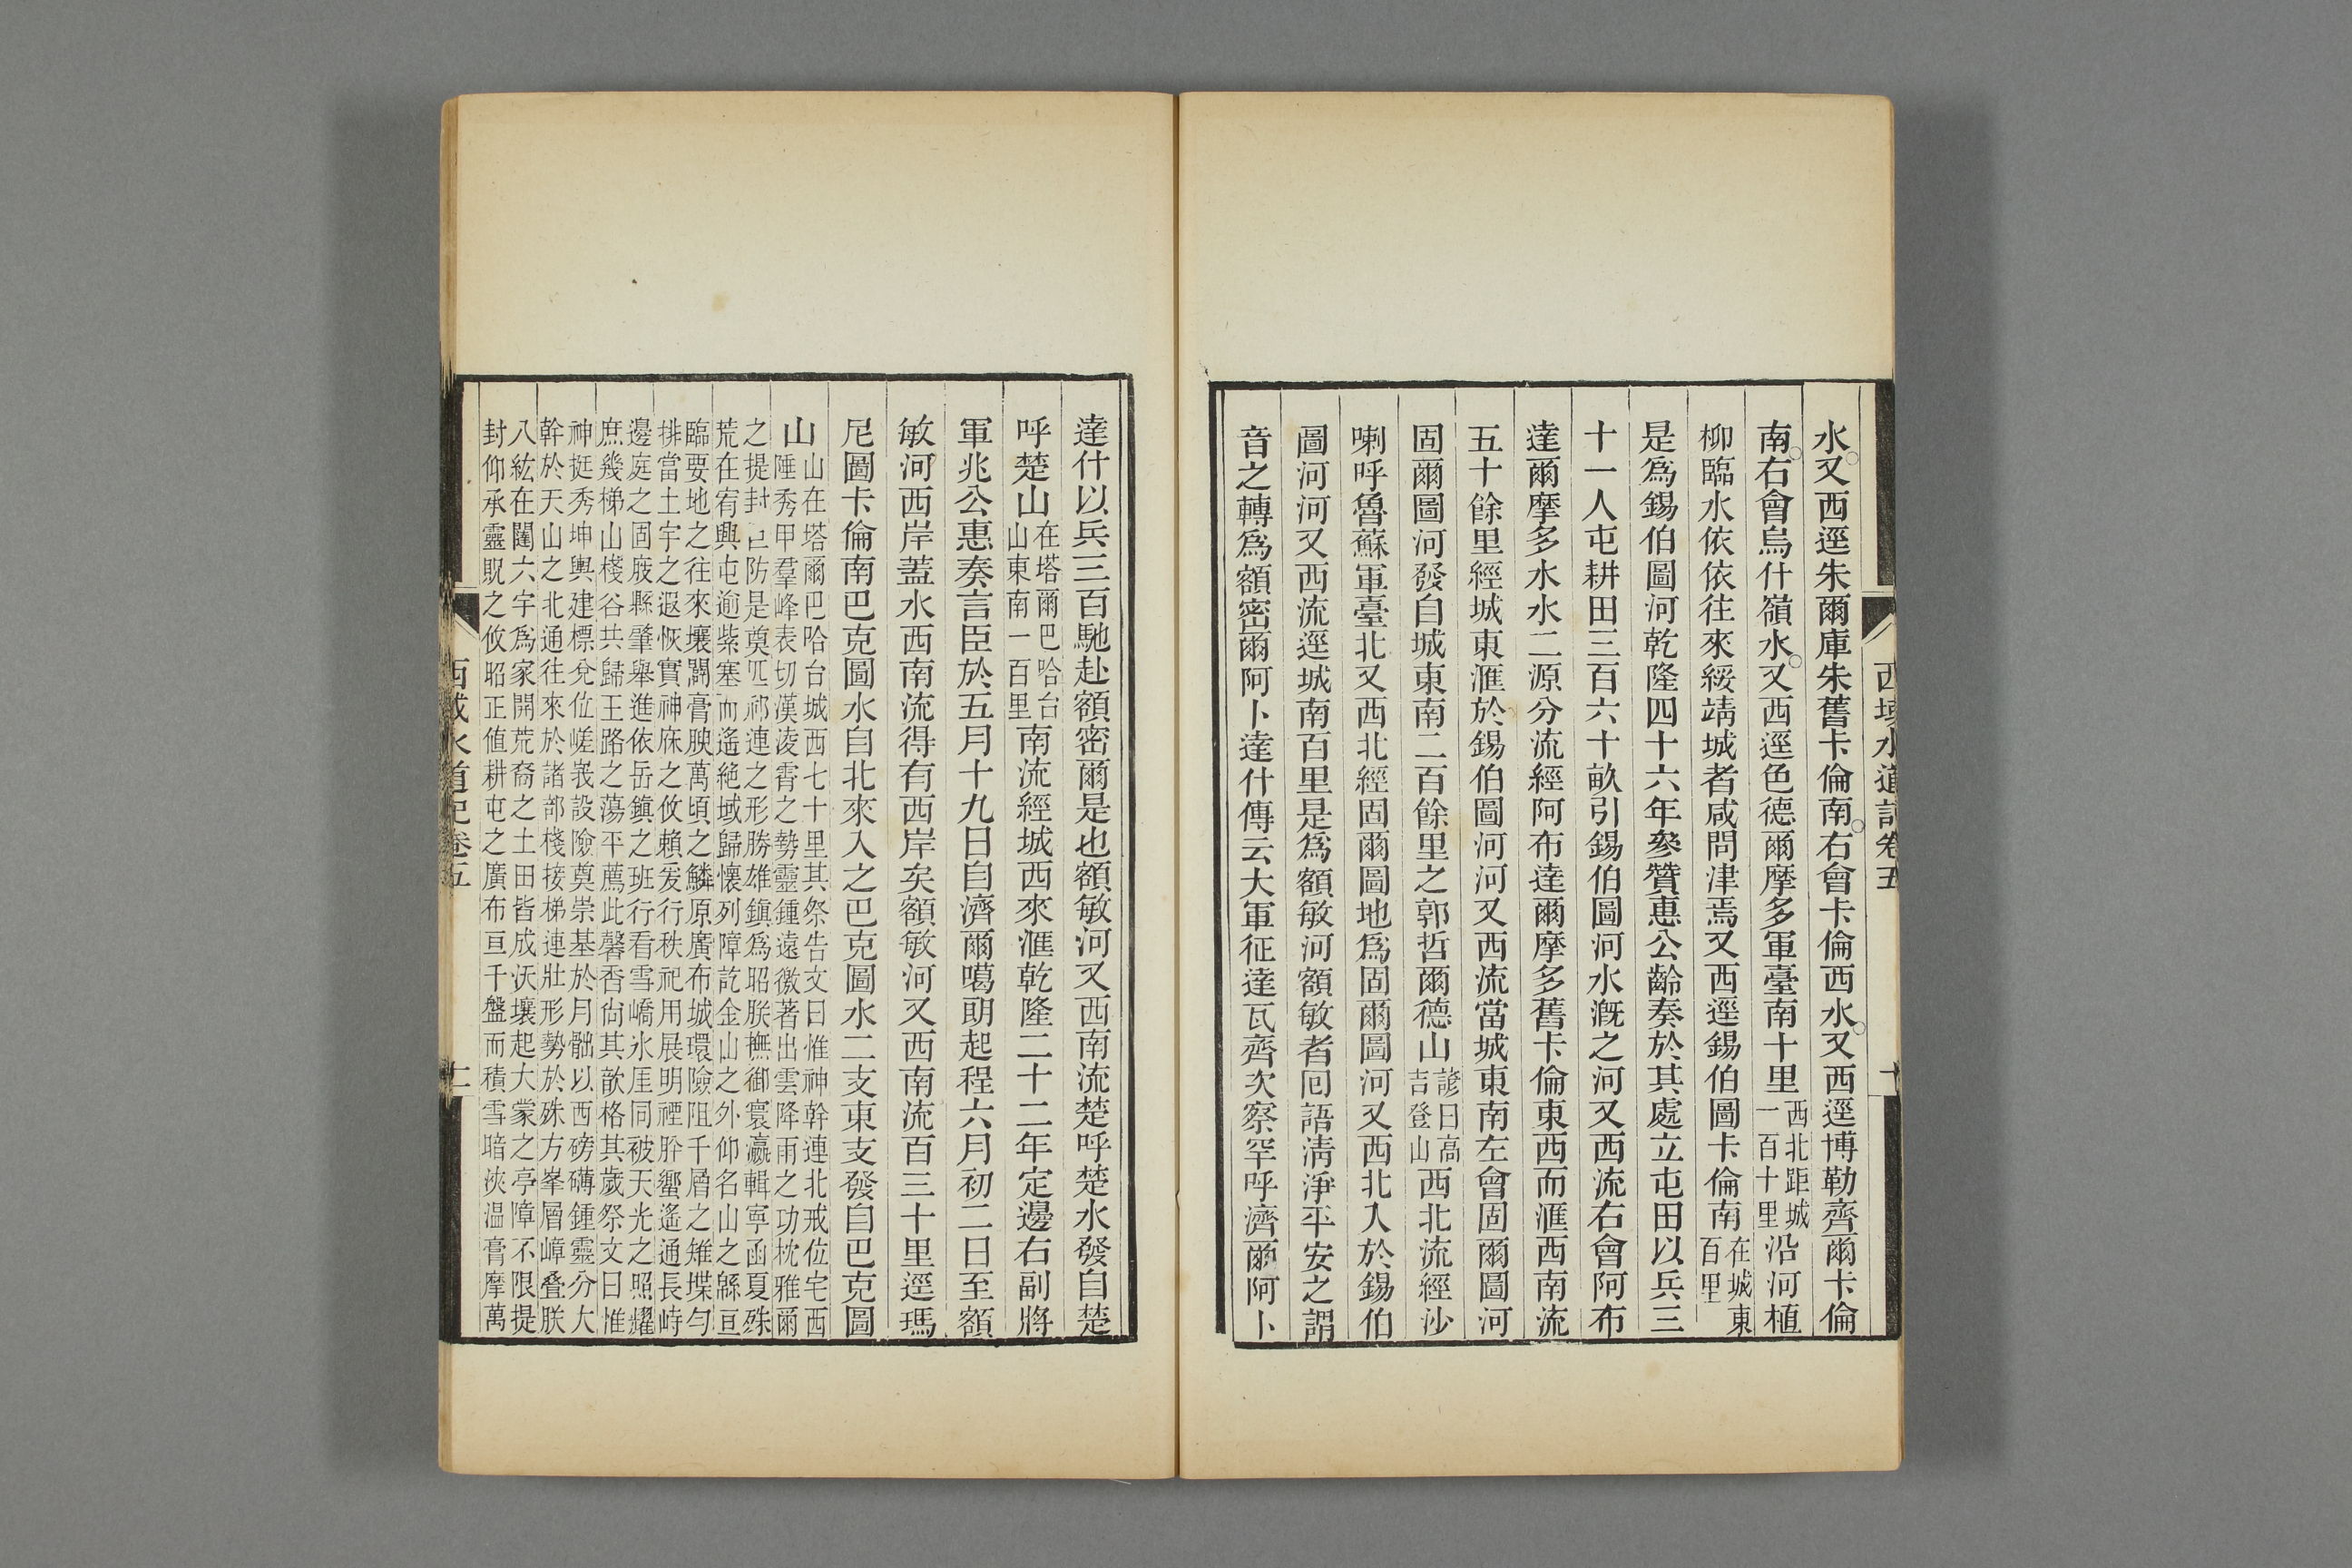 西域水道記卷五
水又西逕朱爾庫朱舊卡倫南右會卡倫西水又西逕博勒齊爾卡倫
南右會烏什嶺水又西逕色德爾摩多軍臺南十里西北距城一百十里沿河植
柳臨水依依往來綏靖城者咸問津焉又西逕錫伯圖卡倫南在城東百里
是爲錫伯圖河乾隆四十六年參贊惠公齡奏於其處立屯田以兵三
十一人屯耕田三百六十畝引錫伯圖河水漑之河又西流右會阿布
達爾摩多水水二源分流經阿布達爾摩多舊卡倫東西而滙西南流
五十餘里經城東滙於錫伯圖河河又西流當城東南左會固爾圖河
固爾圖河發自城東南二百餘里之郭哲爾德山諺曰高吉登山西北流經沙
喇呼魯蘇軍臺北又西北經固爾圖地爲固爾圖河又西北入於錫伯
圖河河又西流逕城南百里是爲額敏河額敏者囘語清淨平安之謂
音之轉爲額密爾阿卜達什傳云大軍征達瓦齊次察罕呼濟爾阿卜
達什以兵三百馳赴額密爾是也額敏河又西南流楚呼楚水發自楚
呼楚山在塔爾巴哈台山東南一百里南流經城西來滙乾隆二十二年定邊右副將
軍兆公惠奏言臣於五月十九日自濟爾噶朗起程六月初二日至額
敏河西岸蓋水西南流得有西岸矣額敏河又西南流百三十里逕瑪
尼圖卡倫南巴克圖水自北來入之巴克圖水二支東支發自巴克圖
山山在塔爾巴哈台城西七十里其祭告文曰惟神幹連北戒位宅西
陲秀甲羣峰表切漢凌霄之勢靈鍾遠徼著出雲降雨之功枕雅爾
之提封 防是奠匹祁連之形勝雄鎭爲昭朕撫御寰瀛輯寧函夏殊
荒在宥興屯逾紫塞而遙絶域歸懷列障訖金山之外仰名山之緜亘
臨要地之往來壤闢膏腴萬頃之鱗原廣布城環險阻千層之雉堞勻
排當土宇之遐恢實神庥之攸賴爰行秩祀用展明禋肸蠁遙通長峙
邊庭之固厥縣肇舉進依岳鎭之班行看雪嶠氷厓同被天光之照耀
庶幾梯山棧谷共歸王路之蕩平薦此馨香尙其歆格其歲祭文曰惟
神挺秀坤輿建標兌位嵯峩設險奠崇基於月𩨨以西磅礴鍾靈分大
幹於天山之北通往來於諸部棧接梯連壯形勢於殊方峯層嶂疊朕
八紘在闥六宇爲家開荒裔之土田皆成沃壤起大蒙之亭障不限提
封仰承靈貺之攸昭正値耕屯之廣布亘千盤而積雪暗浹温膏摩萬
西域水道記卷五